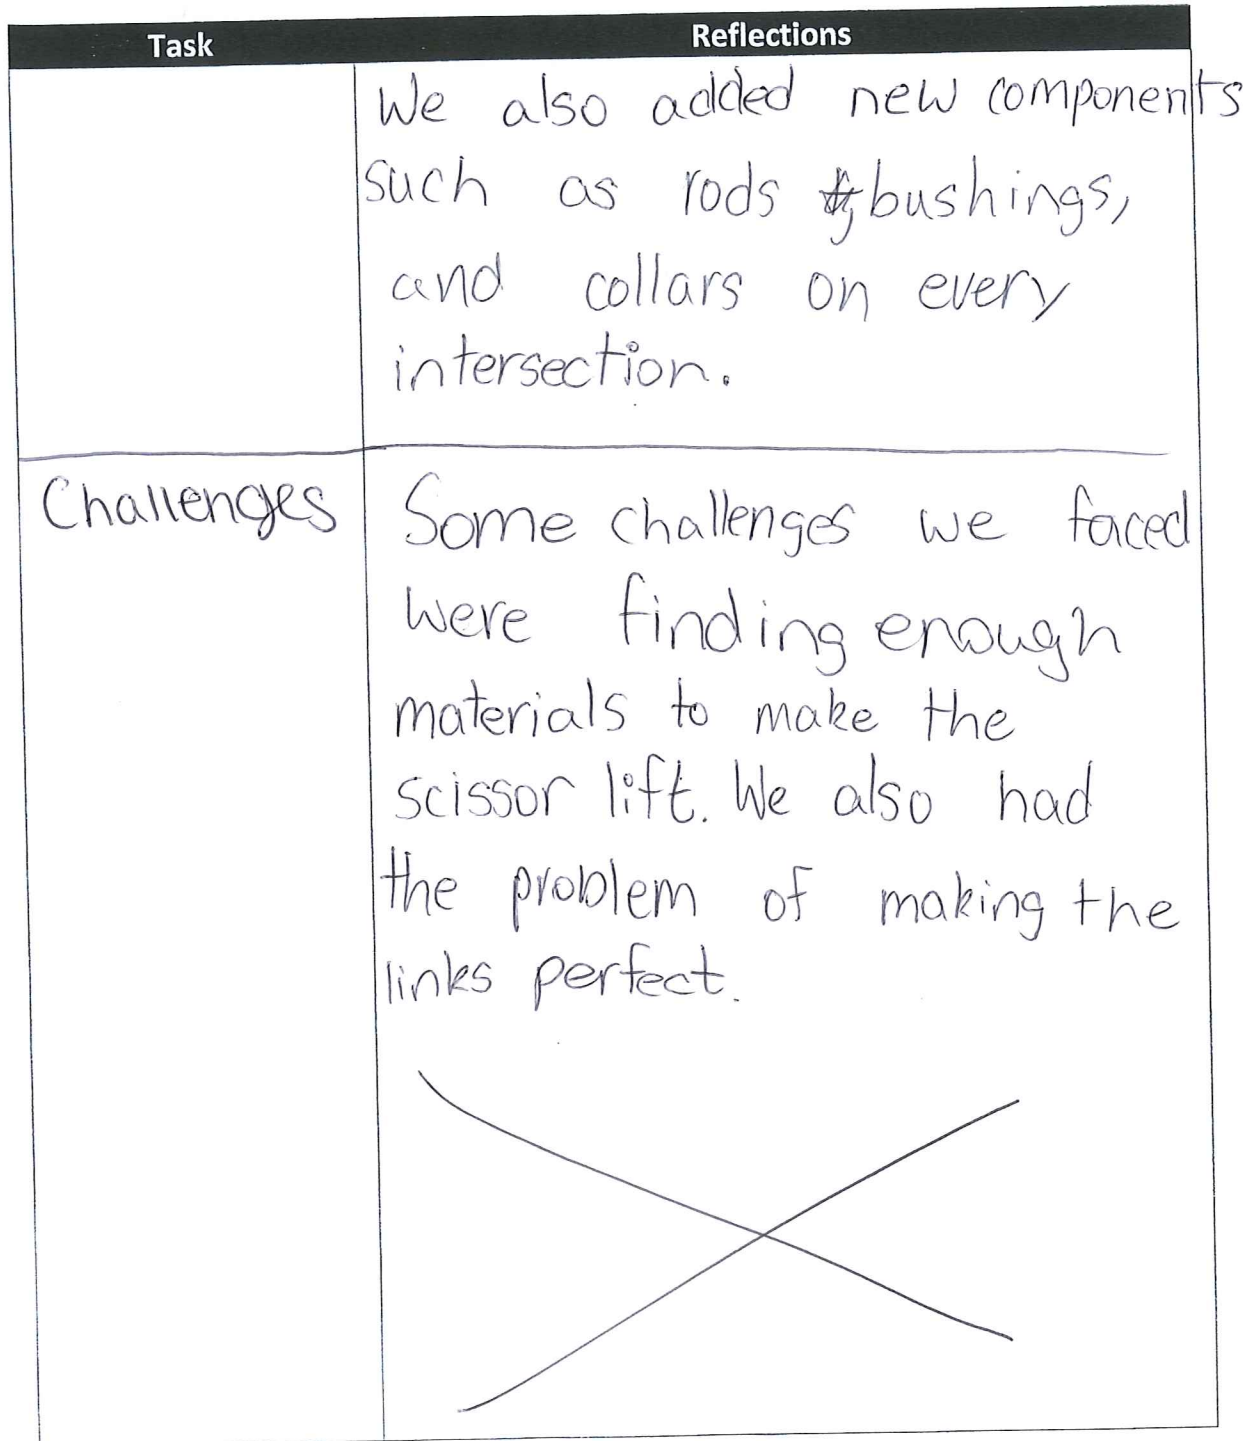 Task Reflections
We also added new components
such as rods bushings,
and collars on every
intersection.
Challenges
Some challenges we faced
were finding enough
materials to make the
scissor lift. We also had
the problem of making the
links perfect.